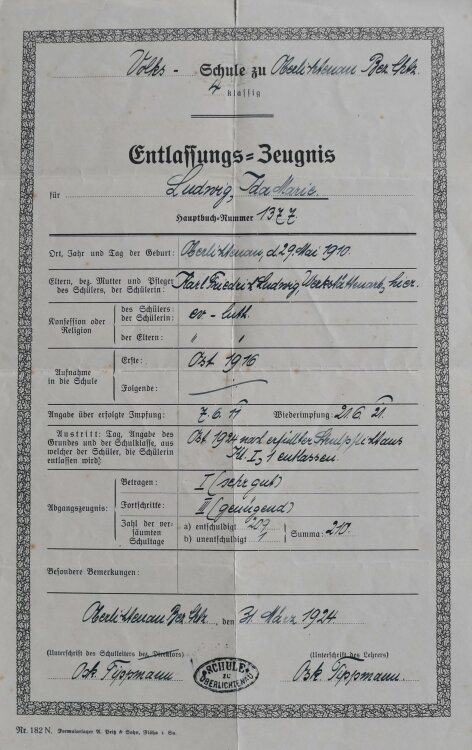 Volks- Schule zu Oberlichtenau Bez. Chtz.
4 klassig
Entlassungs-Zeugnis
für Ludwig, Ida Marie.
Hauptbuch-Nummer 1377
Ort, Jahr und Tag der Geburt: Oberlichtenau, d. 29. Mai 1910.
Eltern, bez. Mutter und Pfleger des Schülers, der Schülerin: Karl Friedrich Ludwig, Werkstättenarb., hier.
Konfession oder Religion
des Schülers: der Schülerin: ev-luth.
der Eltern: " "
Aufnahme in die Schule
Erste: Ost. 1916
Folgende:
Angabe über erfolgte Impfung: 7. 6. 11 Wiederimpfung: 21. 6. 21.
Austritt: Tag, Angabe des Grundes und der Schulklasse, aus welcher der Schüler, die Schülerin entlassen wird:
Ost. 1924 nach erfüllter Schulpflicht aus
Kl. I, 1 entlassen.
Abgangszeugnis:
Betragen: I (sehr gut)
Fortschritte: III (genügend)
Zahl der versäumten Schultage
a) entschuldigt 209
b) unentschuldigt 1
Summa: 210.
Besondere Bemerkungen:
Oberlichtenau Bez. Chtz., den 31. März 1924
(Unterschrift des Schulleiters bez. Direktors) (Unterschrift des Lehrers)
SCHULE ZU OBERLICHTENAU
Osk. Tippmann Osk. Tippmann
Nr. 182 N. Formularlager A. Peitz & Sohn, Flöha i. Sa.